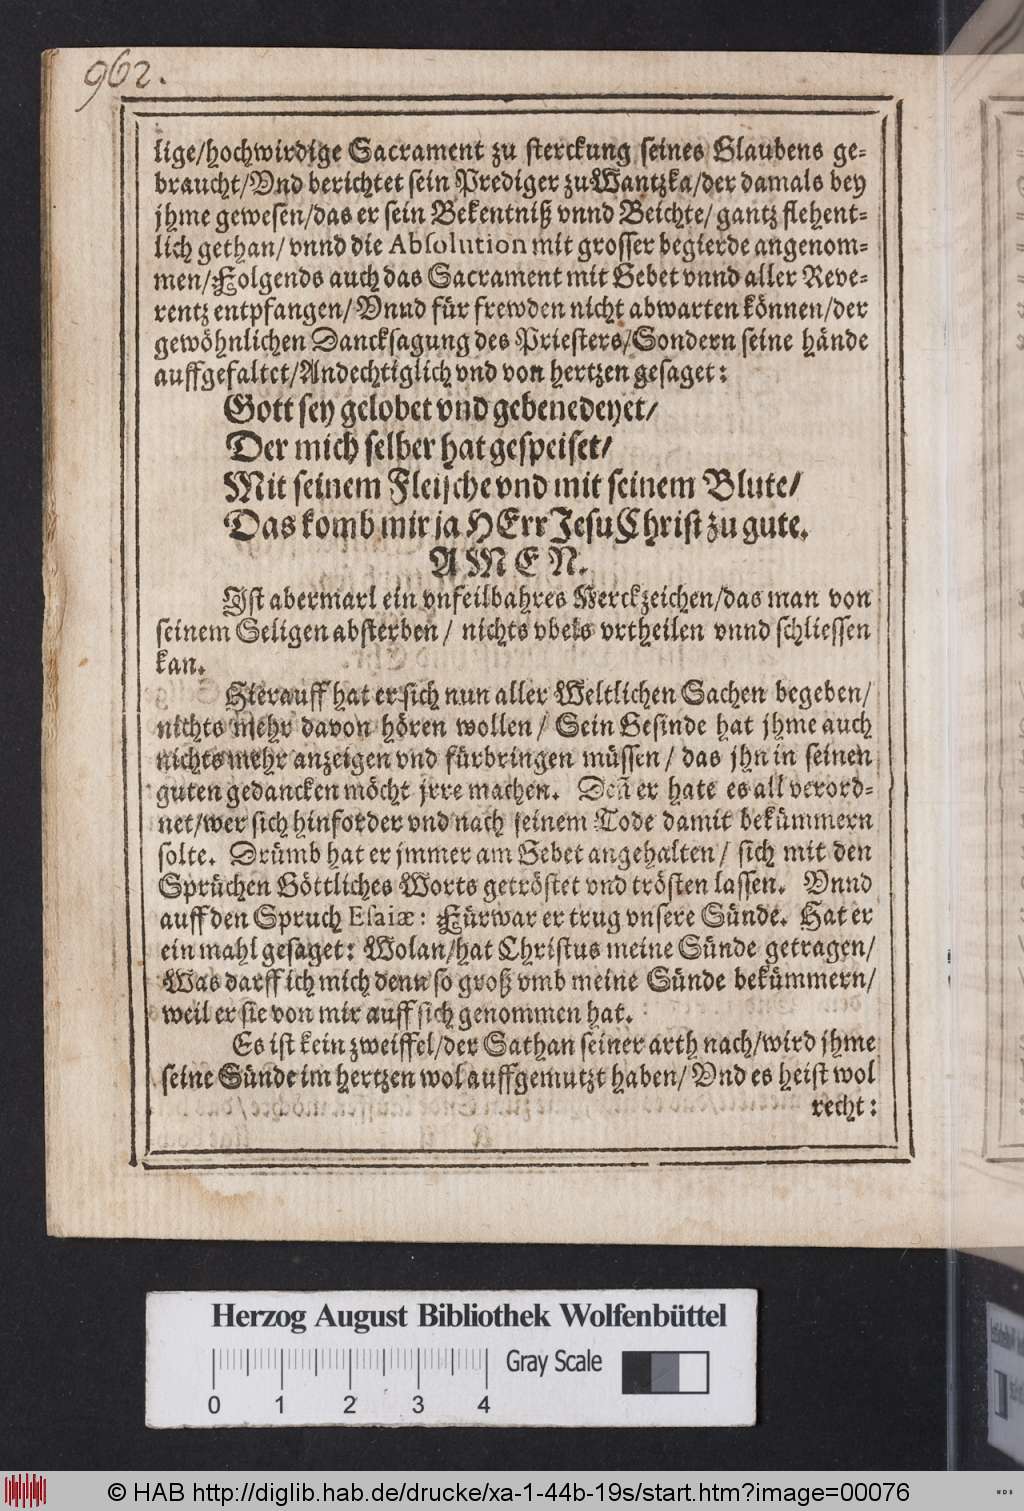 962.
lige/hochwirdige Sacrament zu sterckung seines Glaubens ge-
braucht/Vnd berichtet sein Prediger zu Wantzka/der damals bey
jhme gewesen/das er sein Bekentniß vnnd Beichte/ gantz flehent-
lich gethan/ vnnd die Absolution mit grosser begierde angenom-
men/Folgends auch das Sacrament mit Gebet vnnd aller Reve-
rentz entpfangen/ Vnnd für frewden nicht abwarten können/der
gewöhnlichen Dancksagung des Priesters/Sondern seine hände
auffgefaltet/Andechtiglich vnd von hertzen gesaget:
Gott sey gelobet vnd gebenedeyet/
Der mich selber hat gespeiset/
Mit seinem Fleische vnd mit seinem Blute/
Das komb mir ja HErr Jesu Christ zu gute.
AMEN.
Ist abermarl ein vnfeilbahres Merckzeichen/das man von
seinem Seligen absterben / nichts vbels vrtheilen vnnd schliessen
kan.
Hierauff hat er sich nun aller Weltlichen Sachen begeben/
nichts mehr davon hören wollen / Sein Gesinde hat jhme auch
nichts mehr anzeigen vnd fürbringen müssen / das jhn in seinen
guten gedancken möcht jrre machen. Deñ er hate es all verord-
net/wer sich hinforder vnd nach seinem Tode damit bekümmern
solte. Drümb hat er jmmer am Gebet angehalten / sich mit den
Sprüchen Göttliches Worts getröstet vnd trösten lassen. Vnnd
auff den Spruch Esaiæ: Fürwar er trug vnsere Sünde. Hat er
ein mahl gesaget: Wolan/hat Christus meine Sünde getragen/
Was darff ich mich denn so groß vmb meine Sünde bekümmern/
weil er sie von mir auff sich genommen hat.
Es ist kein zweiffel/der Sathan seiner arth nach/wird jhme
seine Sünde im hertzen wol auffgemutzt haben/ Vnd es heist wol
recht:
Herzog August Bibliothek Wolfenbüttel
Gray Scale
0 1 2 3 4
© HAB http://diglib.hab.de/drucke/xa-1-44b-19s/start.htm?image=00076